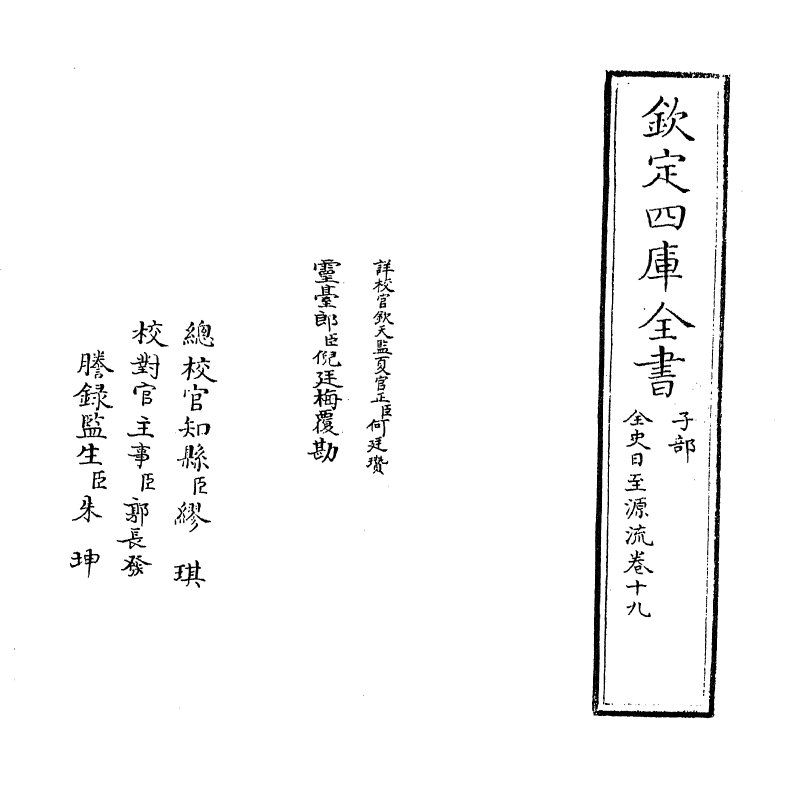 欽定四庫全書
子部
全史日至源流卷十九
詳校官欽天監夏官正臣何廷瓚
靈臺郎臣倪廷梅覆勘
總校官知縣臣繆琪
校對官主事臣郭長發
謄録監生臣朱珅